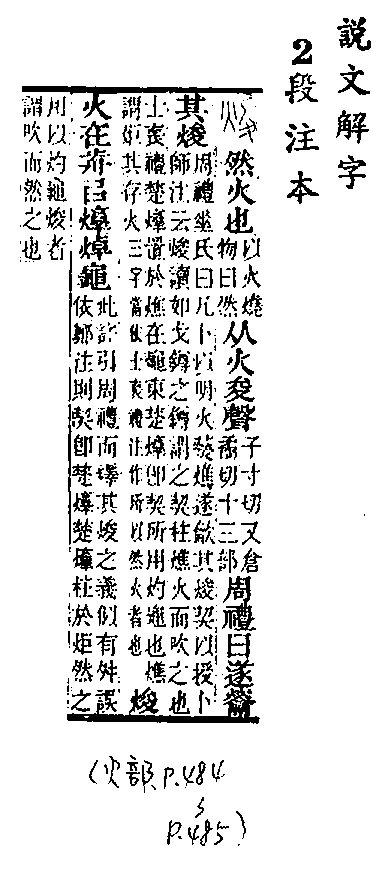 説文解字
2段注本
然火也以火燒物曰然从火夋聲子寸切又倉聿切十三部周禮曰遂籥
其焌周禮菙氏曰凡卜以明火爇燋遂龡其焌契以授卜師注云焌讀如戈鐏之鐏謂之契柱燋火而吹之也
士喪禮楚焞置於燋在龜東楚焞即契所用灼龜也燋謂炬其存火三字當依士喪禮注作所以然火者也焌
火在前㠯焞焯龜此許引周禮而釋其焌之義似有舛誤依鄭注則契即楚焞楚焞柱於炬然之
用以灼龜焌者謂吹而然之也
(火部 P.484
~
P.485)